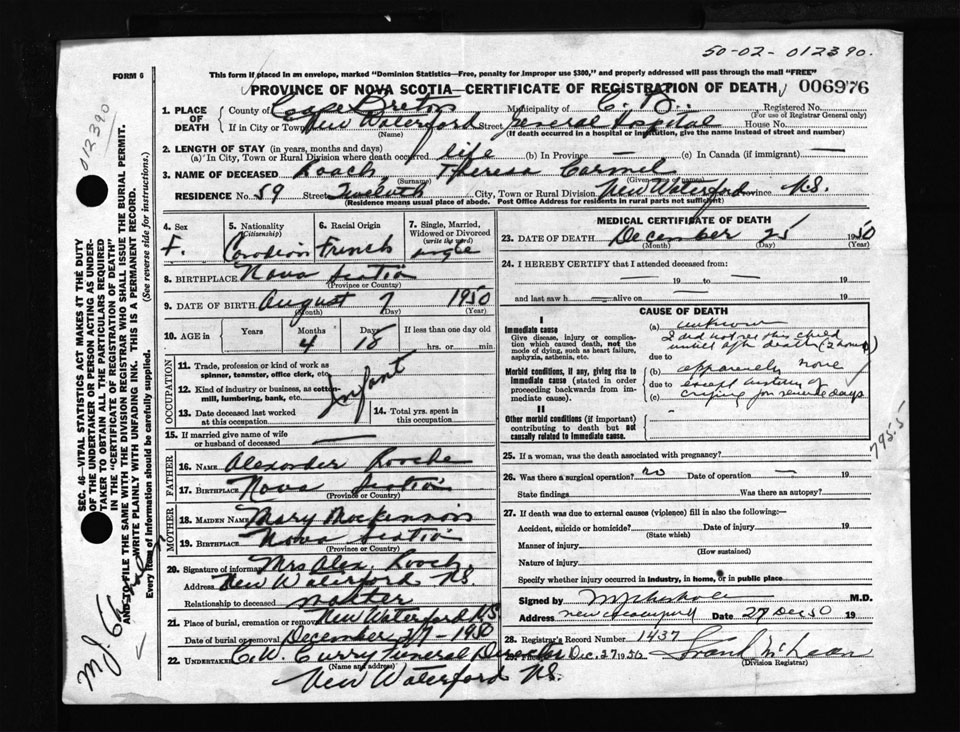 50-02-012390.
FORM 6
This form if placed in an envelope, marked "Dominion Statistics—Free, penalty for improper use $300," and properly addressed will pass through the mail "FREE"
PROVINCE OF NOVA SCOTIA—CERTIFICATE OF REGISTRATION OF DEATH 006976
1. PLACE OF DEATH County of Cape Breton Municipality of C. B. Registered No.
(For use of Registrar General only)
If in City or Town New Waterford Street General Hospital House No.
(Name) (If death occurred in a hospital or institution, give the name instead of street and number)
2. LENGTH OF STAY (in years, months and days)
(a) In City, Town or Rural Division where death occurred life (b) In Province — (c) In Canada (if immigrant) —
3. NAME OF DECEASED Roach Theresa Carmel
(Surname) (Given names)
RESIDENCE No. 59 Street Twelveth City, Town or Rural Division New Waterford Province N.S.
(Residence means usual place of abode. Post Office Address for residents in rural parts not sufficient)
4. Sex F.
5. Nationality (Citizenship) Canadian
6. Racial Origin French
7. Single, Married, Widowed or Divorced (write the word) single
8. BIRTHPLACE Nova Scotia
(Province or Country)
9. DATE OF BIRTH August 7 1950
(Month) (Day) (Year)
10. AGE in Years Months 4 Days 18 If less than one day old
hrs. or min.
OCCUPATION
11. Trade, profession or kind of work as spinner, teamster, office clerk, etc.
Infant
12. Kind of industry or business, as cotton-mill, lumbering, bank, etc.
13. Date deceased last worked at this occupation
14. Total yrs. spent in this occupation
15. If married give name of wife or husband of deceased —
FATHER
16. NAME Alexander Roache
17. BIRTHPLACE Nova Scotia
(Province or Country)
MOTHER
18. MAIDEN NAME Mary MacKinnon
19. BIRTHPLACE Nova Scotia
(Province or Country)
20. Signature of informant Mrs Alex. Roach
Address New Waterford N.S.
Relationship to deceased mother
21. Place of burial, cremation or removal New Waterford N.S.
Date of burial or removal December 27 - 1950
22. UNDERTAKER C.W. Curry Funeral Director
(Name and address)
New Waterford N.S.
MEDICAL CERTIFICATE OF DEATH
23. DATE OF DEATH December 25 1950
(Month) (Day) (Year)
24. I HEREBY CERTIFY that I attended deceased from:
— 19 to — 19
and last saw h — alive on — 19
CAUSE OF DEATH
I
Immediate cause
Give disease, injury or complication which caused death, not the mode of dying, such as heart failure, asphyxia, asthenia, etc.
(a) unknown
I did not see this child until after death (2 hours)
due to
Morbid conditions, if any, giving rise to immediate cause (stated in order proceeding backwards from immediate cause).
(b) apparently none
due to except history of
(c) crying for several days
II
Other morbid conditions (if important) contributing to death but not causally related to immediate cause.
7955
25. If a woman, was the death associated with pregnancy?
26. Was there a surgical operation? no Date of operation — 19
State findings Was there an autopsy?
27. If death was due to external causes (violence) fill in also the following:—
Accident, suicide or homicide? Date of injury 19
(State which)
Manner of injury
(How sustained)
Nature of injury
Specify whether injury occurred in industry, in home, or in public place
Signed by M.D.
Address Date 27 Dec 50 19
28. Registrar's Record Number 1437
Dec. 27 1950
(Division Registrar)
012390
SEC. 46—VITAL STATISTICS ACT MAKES IT THE DUTY
OF THE UNDERTAKER OR PERSON ACTING AS UNDER-
TAKER TO OBTAIN ALL THE PARTICULARS REQUIRED
IN THE "CERTIFICATE OF REGISTRATION OF DEATH"
AND TO FILE THE SAME WITH THE DIVISION REGISTRAR WHO SHALL ISSUE THE BURIAL PERMIT.
WRITE PLAINLY WITH UNFADING INK. THIS IS A PERMANENT RECORD.
Every item of information should be carefully supplied. (See reverse side for instructions.)